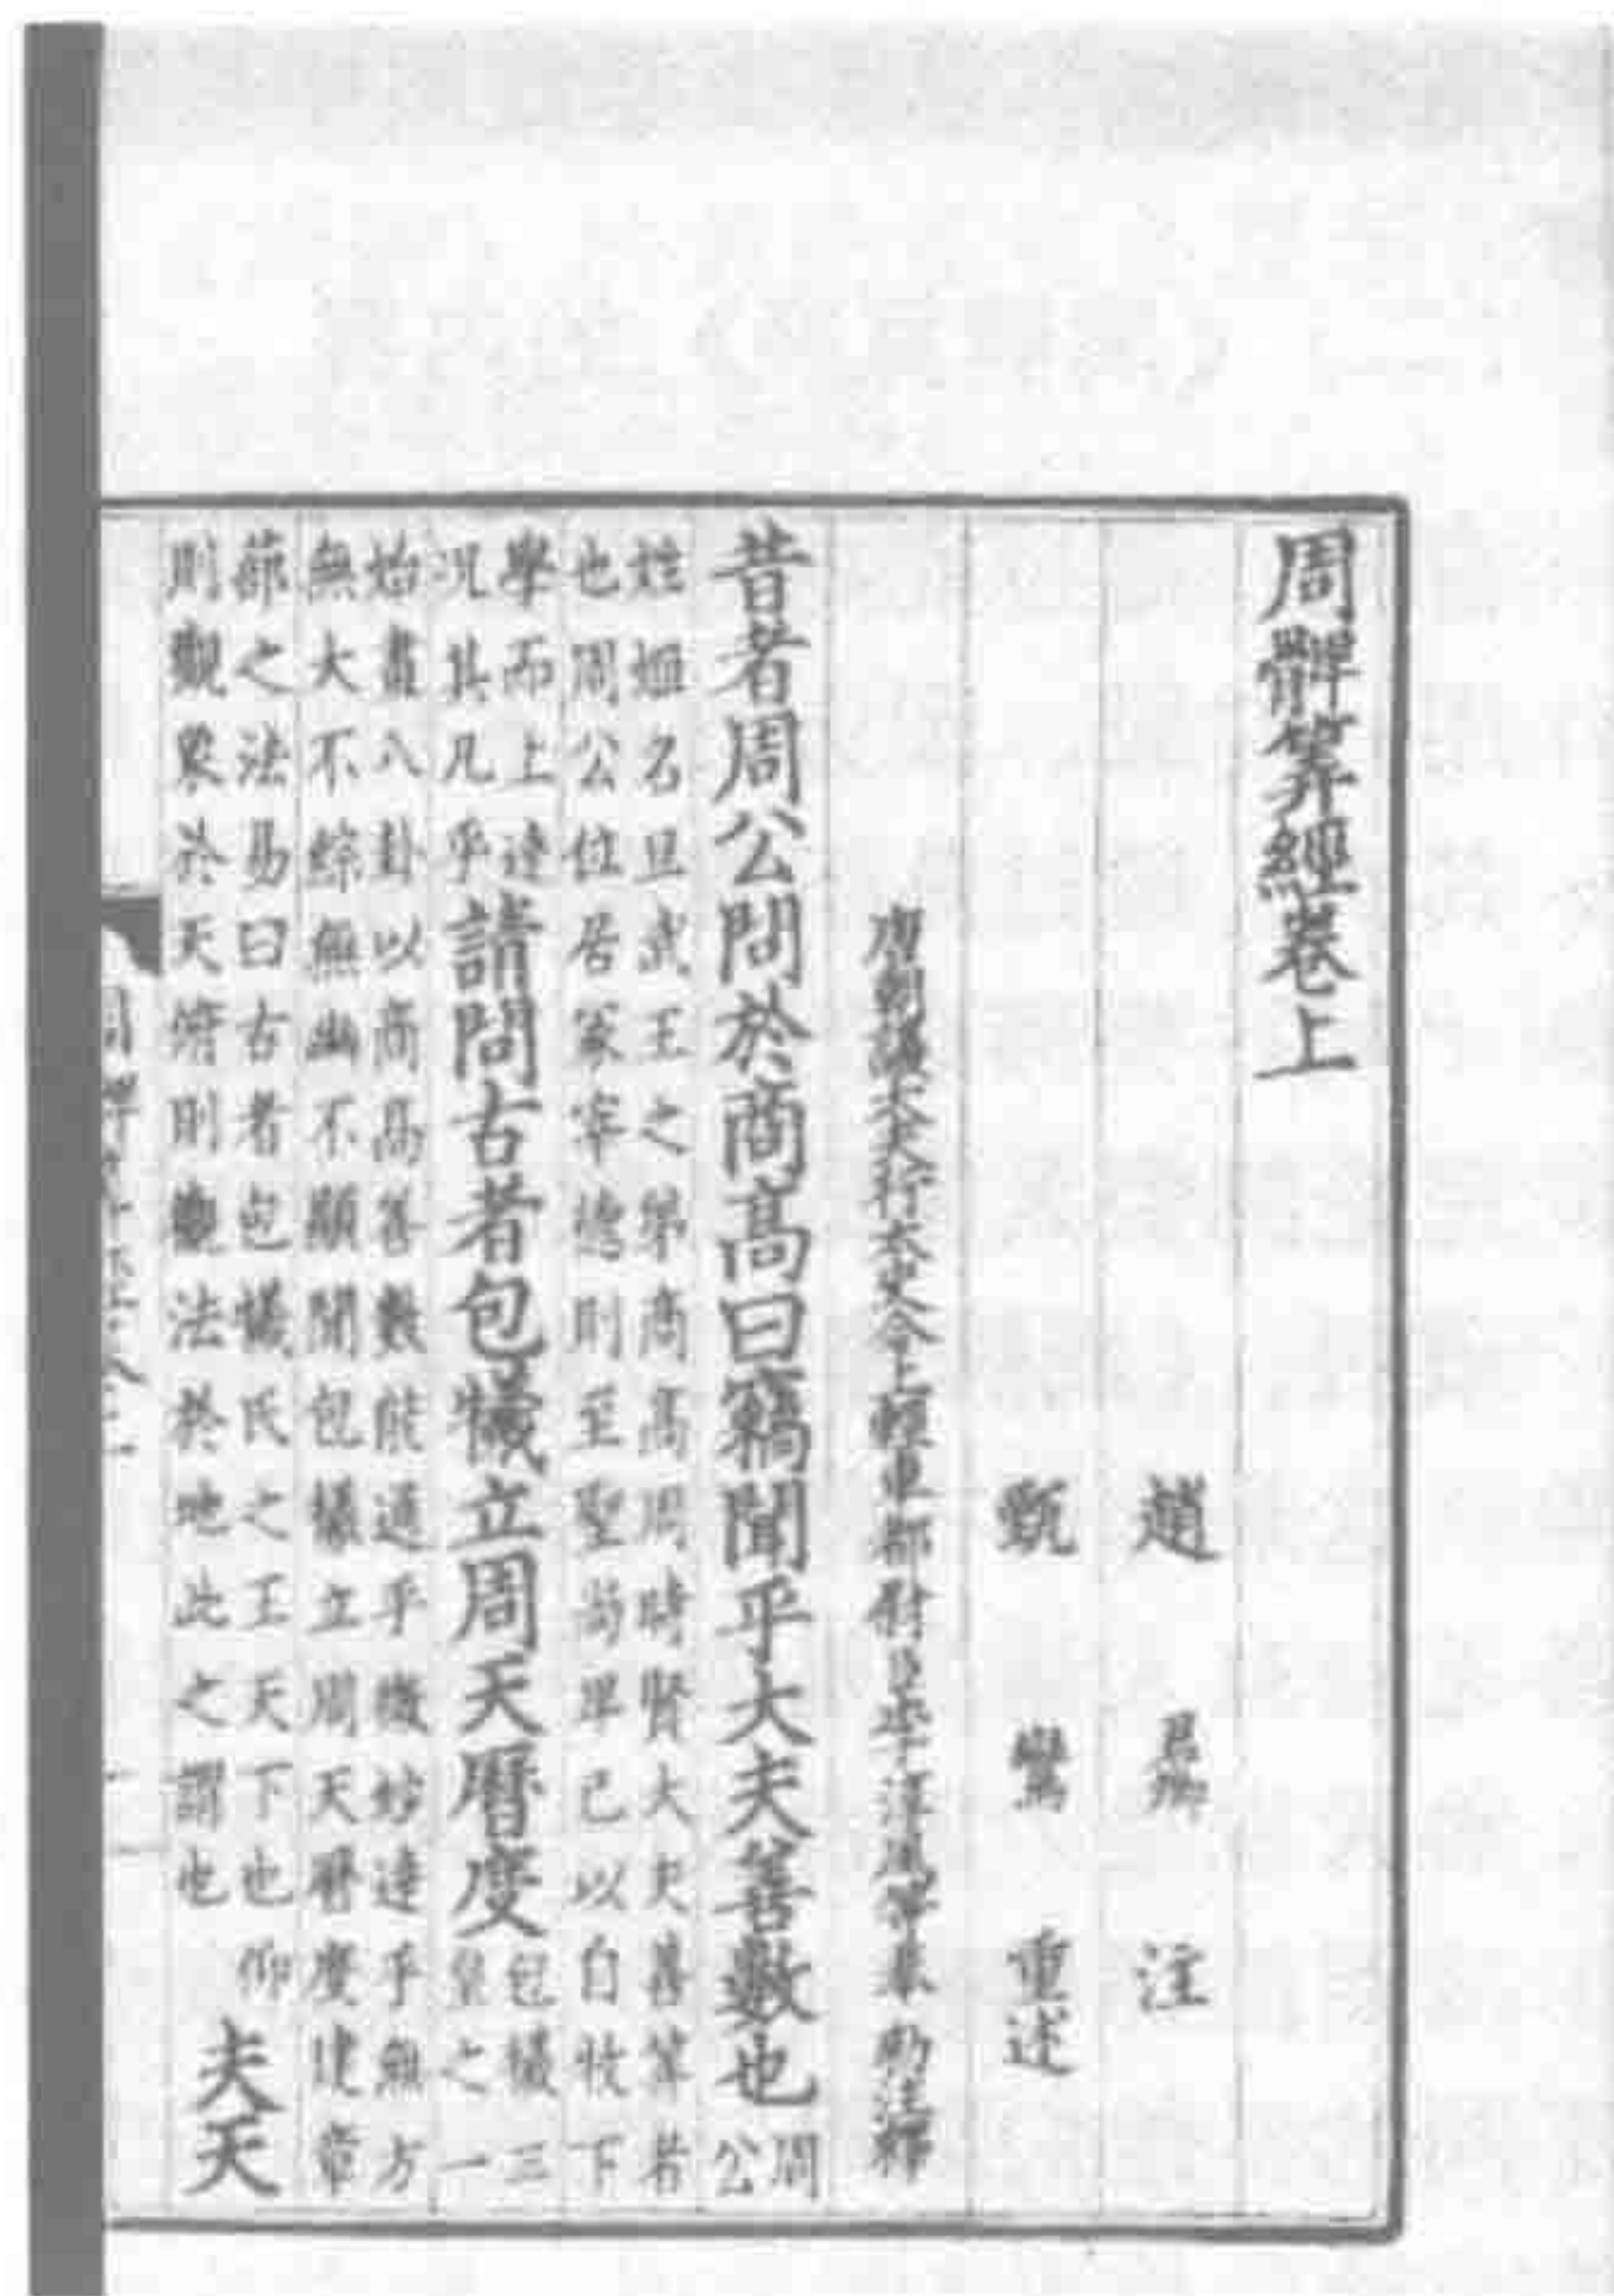 周髀筭經卷上
趙君卿注
甄鸞重述
唐朝議大夫行太史令上輕車都尉臣李淳風等奉 勅注釋
昔者周公問於商高曰竊聞乎大夫善數也周公
姓姬名旦武王之弟商高周時賢大夫善筭者
也周公位居冢宰德則至聖尚卑己以自牧下
學而上達況其凡乎請問古者包犧立周天曆度包犧三皇之一
始畫八卦以商高善數能通乎微妙達乎無方
無大不綜無幽不顯聞包犧立周天曆度建章
蔀之法易曰古者包犧氏之王天下也仰
則觀象於天俯則觀法於地此之謂也夫天